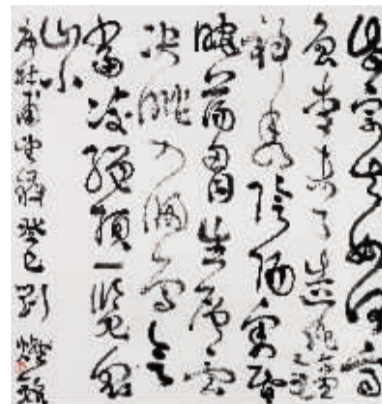 岱宗夫如何齊
魯青未了造化鍾
神秀陰陽割昏
曉蕩胸生層雲
決眦入歸鳥會
當凌絕頂一覽眾
山小
唐杜甫望嶽癸巳劉燦銘